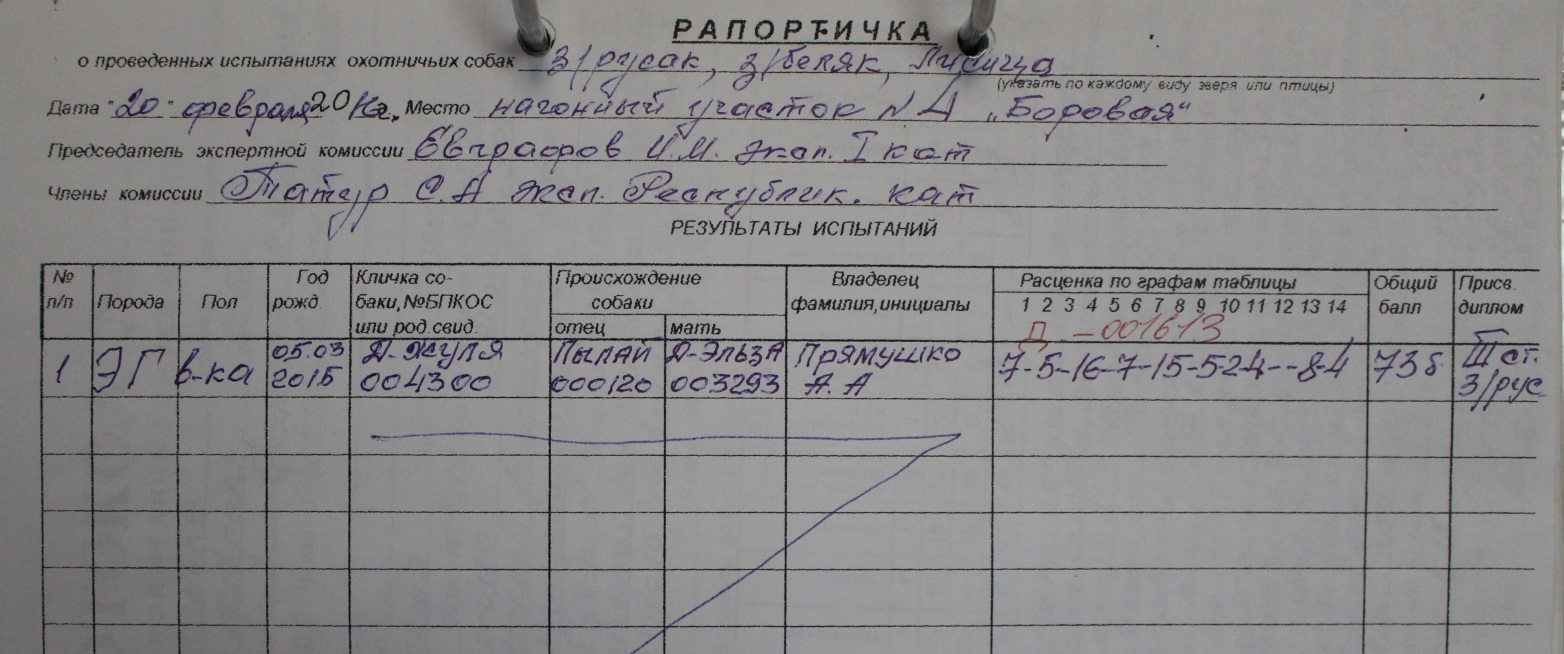 РАПОРТИЧКА
о проведенных испытаниях охотничьих собак з/русак, з/беляк, Лисица
(указать по каждому виду зверя или птицы)
Дата "20" февраля 20 г. Место нагонный участок №4 „Боровая"
Председатель экспертной комиссии Евграфов И.М. эксп. I кат
Члены комиссии Татур С.А эксп. Республик. кат
РЕЗУЛЬТАТЫ ИСПЫТАНИЙ
№ п/п Порода Пол Год рожд. Кличка собаки,№БПКОС или род.свид. Происхождение собаки отец мать Владелец фамилия,инициалы Расценка по графам таблицы 1 2 3 4 5 6 7 8 9 10 11 12 13 14 Общий балл Присв. диплом
Д-001613
1 ЭГ в-ка 05.03 2015 Д-Жуля 004300 Пылай 000120 Д-Эльза 003293 Прямушко А.А 7-5-16-7-15-5-24--8-4 73б. III ст. З/рус